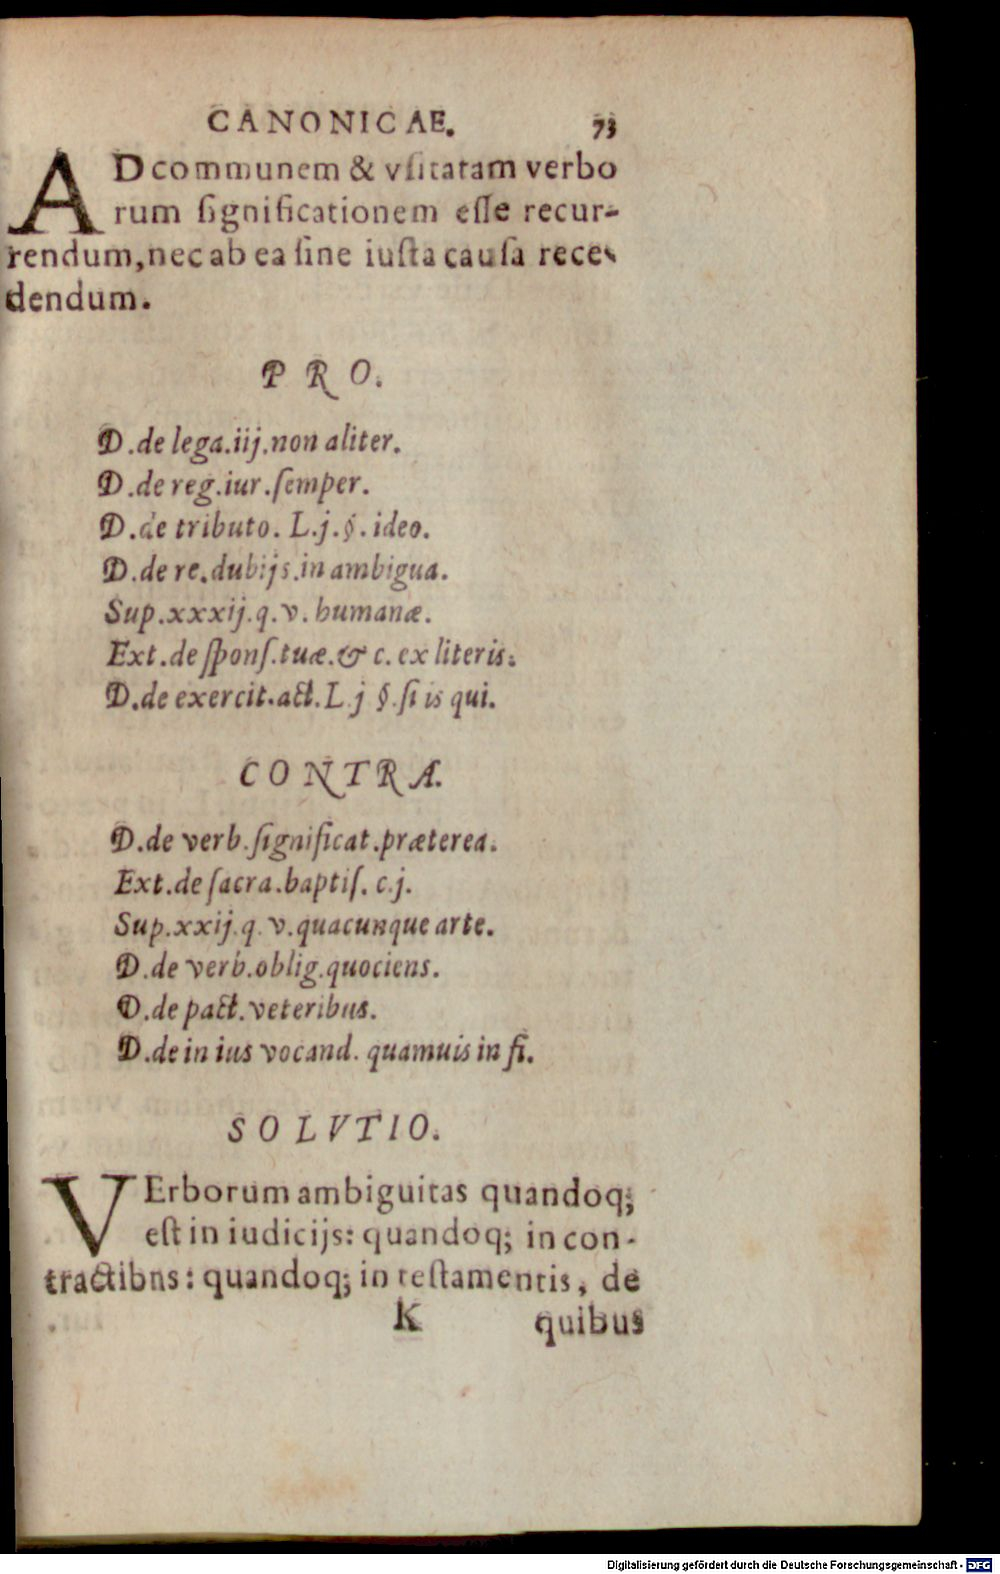 CANONICAE. 73
AD communem & vſitatam verbo
rum ſignificationem eſſe recur-
rendum, nec ab ea ſine iuſta cauſa rece-
dendum.
PRO.
D. de lega. iij. non aliter.
D. de reg. iur. ſemper.
D. de tributo. L. j. §. ideo.
D. de re. dubijs. in ambigua.
Sup. xxxij. q. v. humanæ.
Ext. de ſponſ. tuæ. & c. ex literis.
D. de exercit. act. L. j §. ſi is qui.
CONTRA.
D. de verb. ſignificat. præterea.
Ext. de ſacra. baptiſ. c. j.
Sup. xxij. q. v. quacunque arte.
D. de verb. oblig. quociens.
D. de pact. veteribus.
D. de in ius vocand. quamuis in fi.
SOLVTIO.
VErborum ambiguitas quandoq;
eſt in iudicijs: quandoq; in con-
tractibns: quandoq; in teſtamentis, de
K quibus
Digitalisierung gefördert durch die Deutsche Forschungsgemeinschaft - DFG